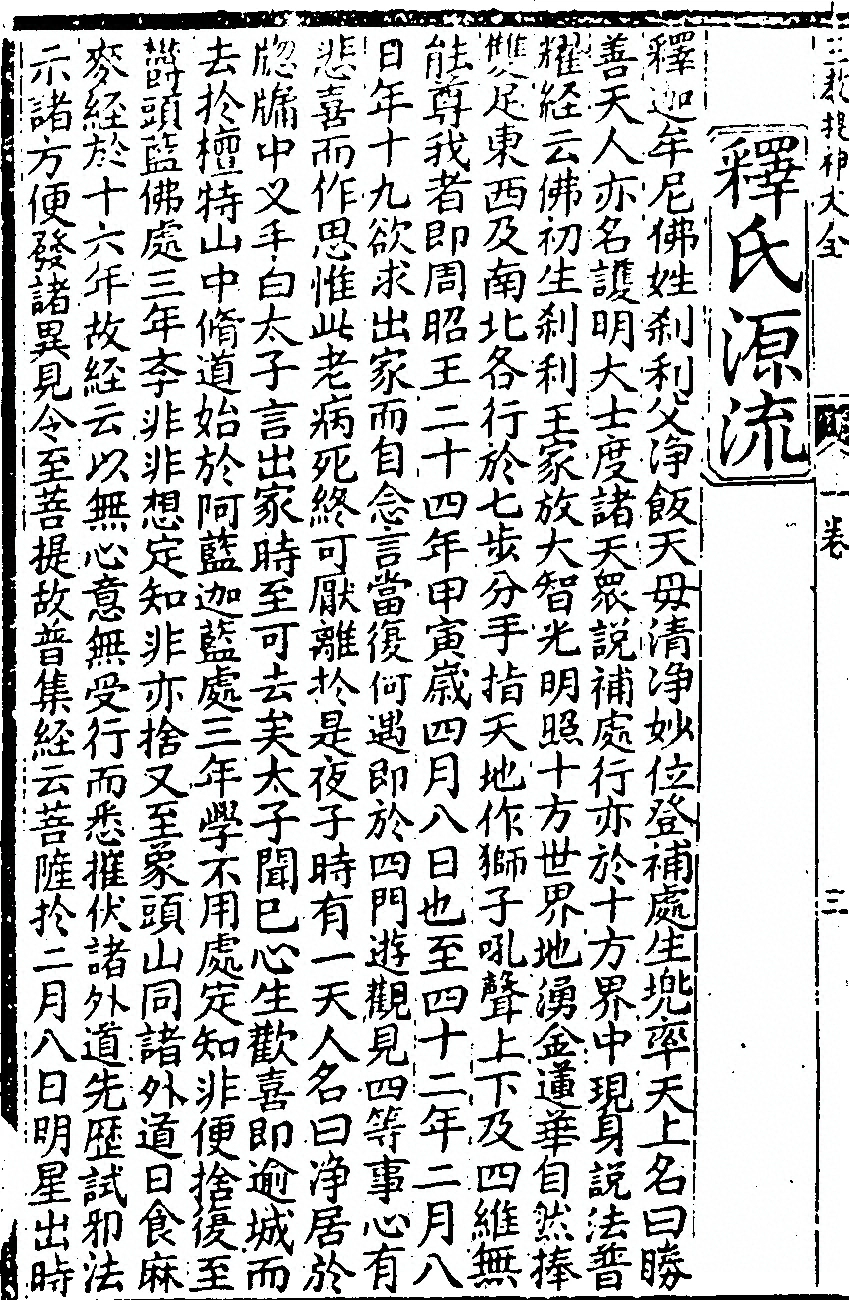 三教搜神大全
卷一
三
釋氏源流
釋迦牟尼佛姓刹利父淨飯天母清淨妙位登補處生兜率天上名曰勝
善天人亦名護明大士度諸天衆說補處行亦於十方界中現身說法普
耀経云佛初生刹利王家放大智光明照十方世界地湧金蓮華自然捧
雙足東西及南北各行於七步分手指天地作獅子吼聲上下及四維無
能尊我者即周昭王二十四年甲寅歳四月八日也至四十二年二月八
日年十九欲求出家而自念言當復何遇即於四門遊觀見四等事心有
悲喜而作思惟此老病死終可厭離扵是夜子時有一天人名曰淨居於
牎牖中叉手白太子言出家時至可去矣太子聞已心生歡喜即逾城而
去扵檀特山中脩道始於阿藍迦藍處三年學不用處定知非便捨復至
欝頭藍佛處三年李非非想定知非亦捨又至象頭山同諸外道日食麻
麥経於十六年故経云以無心意無受行而悉摧伏諸外道先歴試邪法
示諸方便發諸異見令至菩提故普集経云菩薩扵二月八日明星出時